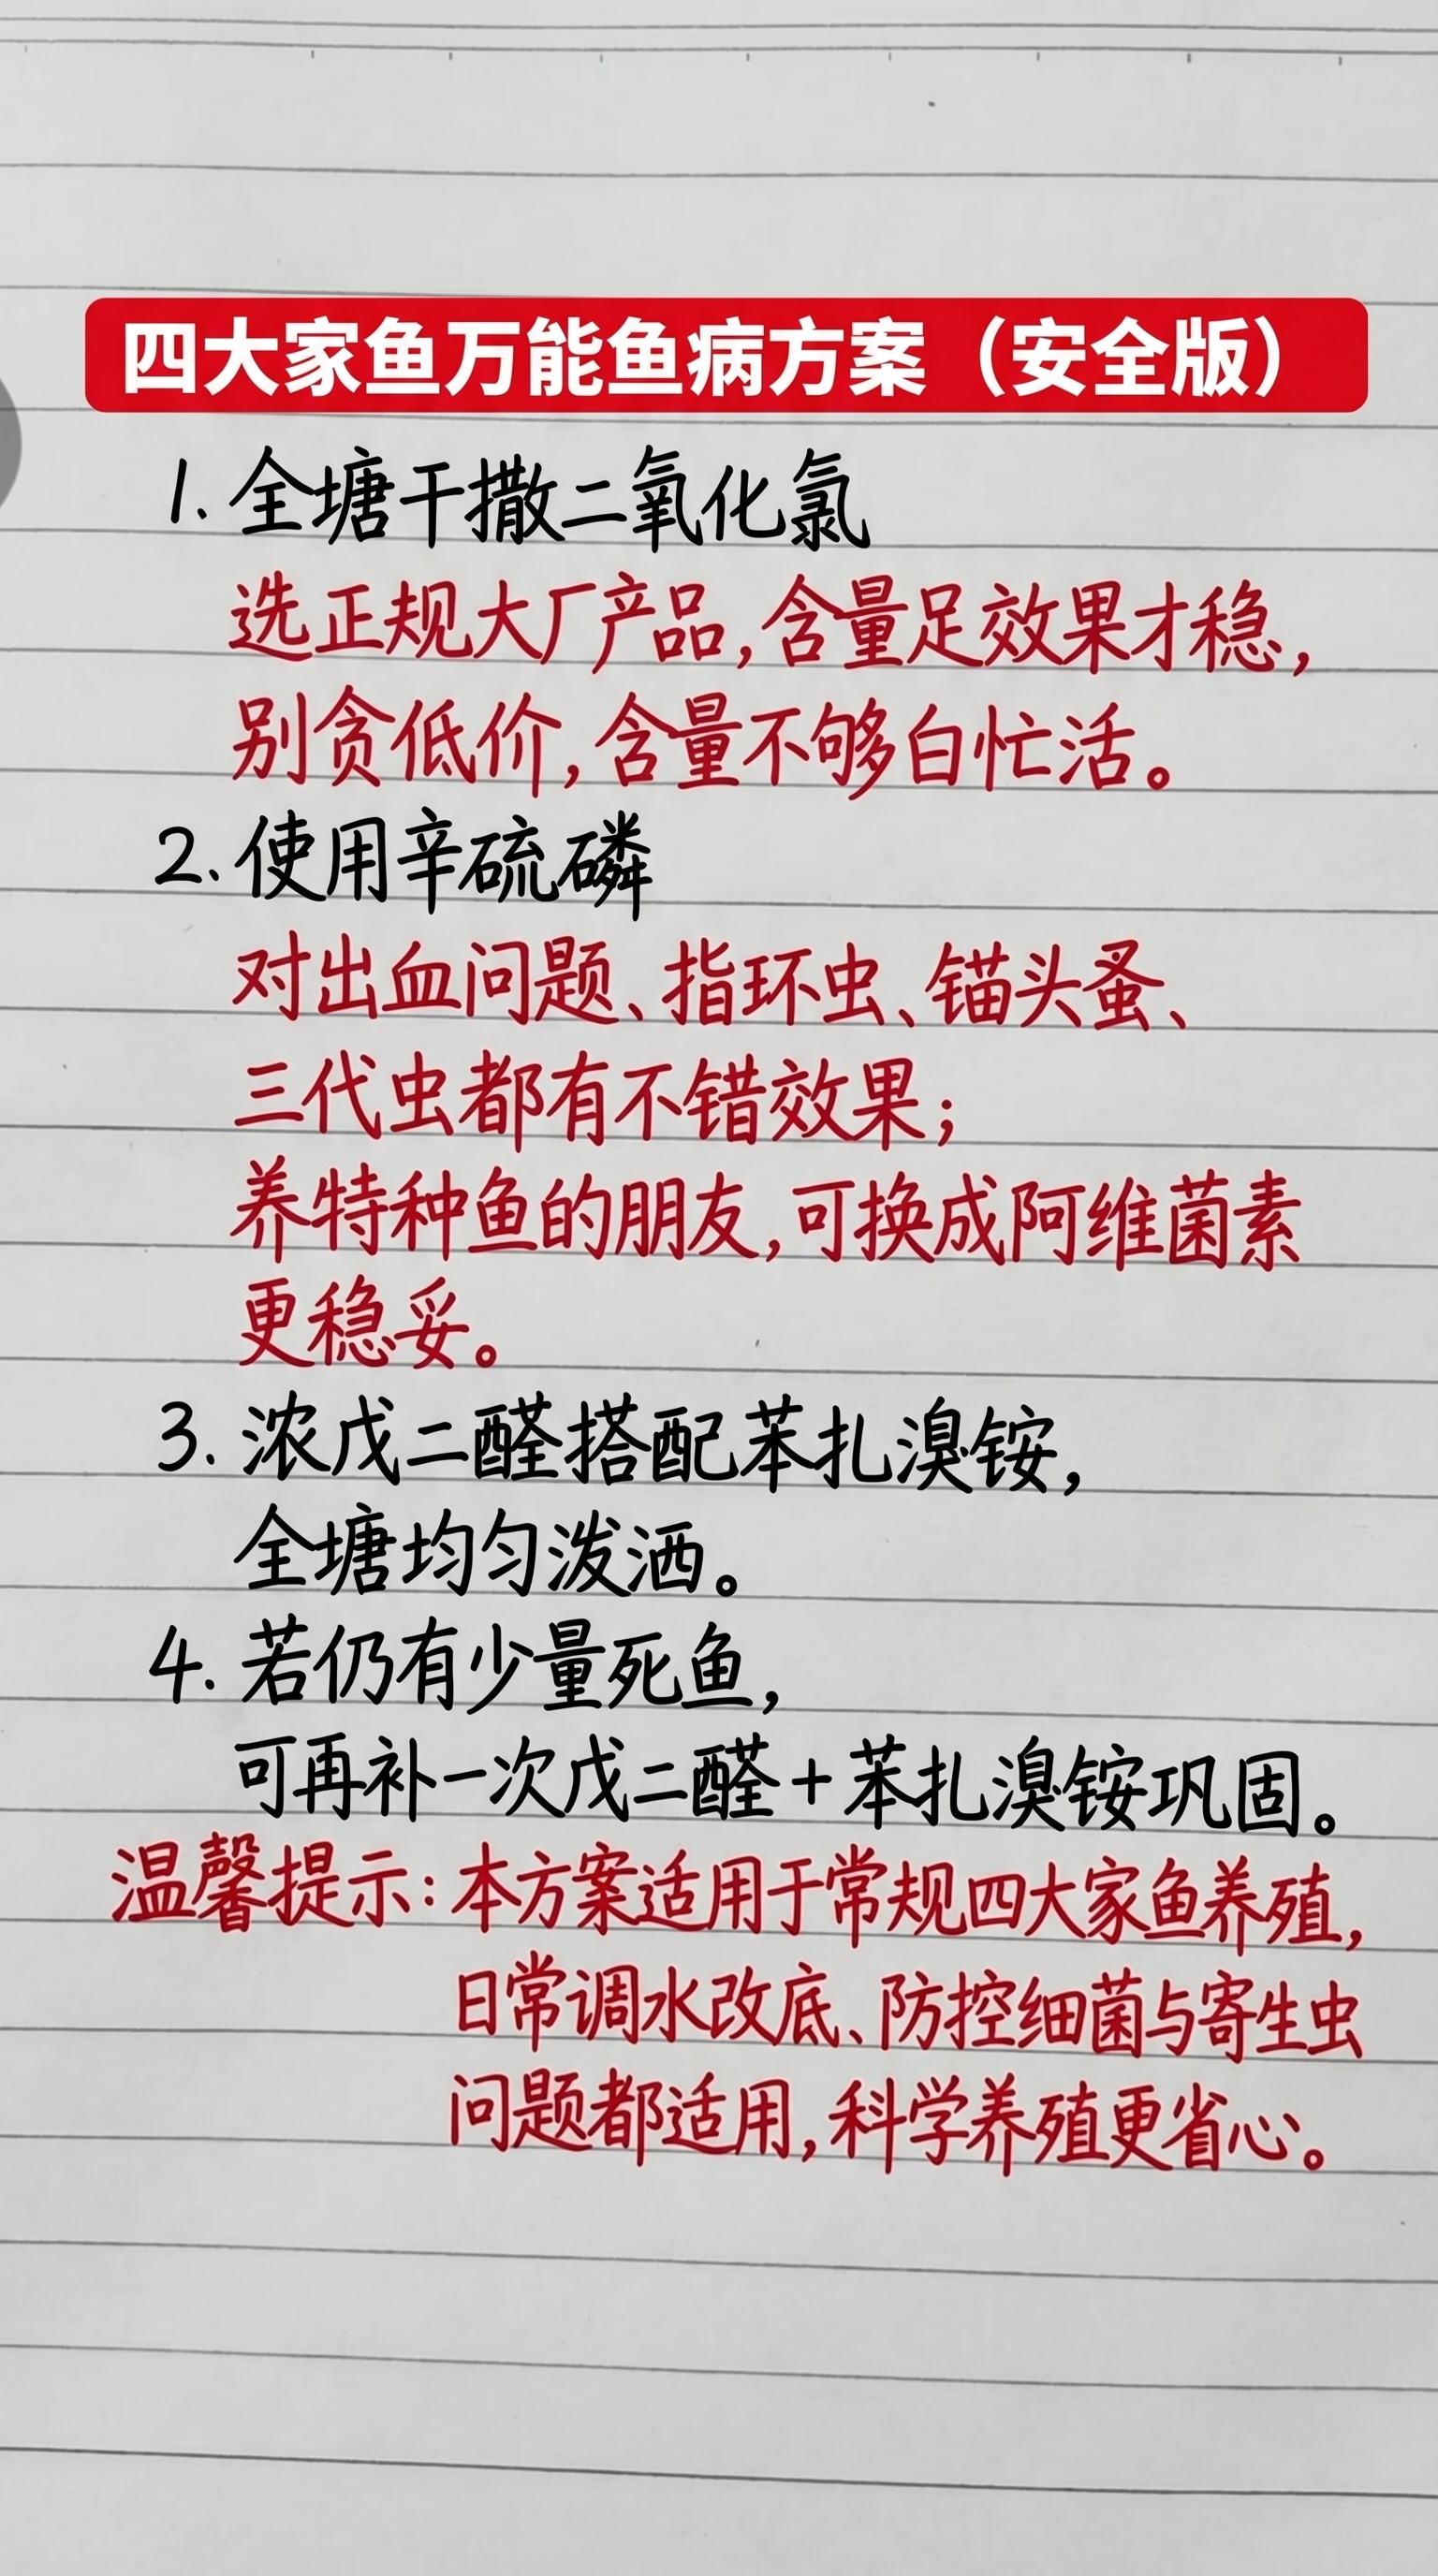 四大家鱼万能鱼病方案（安全版）
1. 全塘干撒二氧化氯
选正规大厂产品，含量足效果才稳，
别贪低价，含量不够白忙活。
2. 使用辛硫磷
对出血问题、指环虫、锚头蚤、
三代虫都有不错效果；
养特种鱼的朋友，可换成阿维菌素
更稳妥。
3. 浓戊二醛搭配苯扎溴铵，
全塘均匀泼洒。
4. 若仍有少量死鱼，
可再补一次戊二醛+苯扎溴铵巩固。
温馨提示：本方案适用于常规四大家鱼养殖，
日常调水改底、防控细菌与寄生虫
问题都适用，科学养殖更省心。